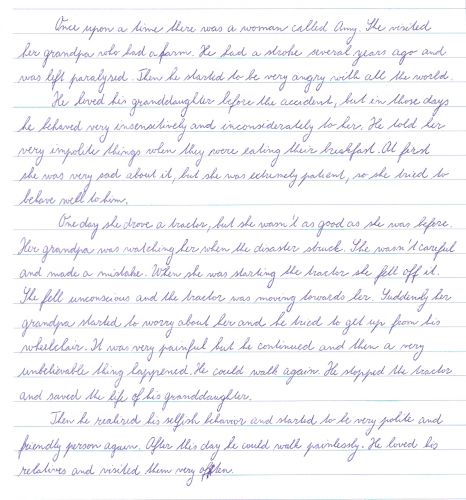 Once upon a time there was a woman called Amy. She visited
her grandpa who had a farm. He had a stroke several years ago and
was left paralyzed. Then he started to be very angry with all the world.
He loved his granddaughter before the accident, but in those days
he behaved very insensitively and inconsiderately to her. He told her
very impolite things when they were eating their breakfast. At first
she was very sad about it, but she was extremely patient, so she tried to
behave well to him.
One day she drove a tractor, but she wasn't as good as she was before.
Her grandpa was watching her when the disaster struck. She wasn't careful
and made a mistake. When she was starting the tractor she fell off it.
She fell unconscious and the tractor was moving towards her. Suddenly her
grandpa started to worry about her and he tried to get up from his
wheelchair. It was very painful but he continued and then a very
unbelievable thing happened. He could walk again. He stopped the tractor
and saved the life of his granddaughter.
Then he realized his selfish behavior and started to be very polite and
friendly person again. After this day he could walk painlessly. He loved his
relatives and visited them very often.